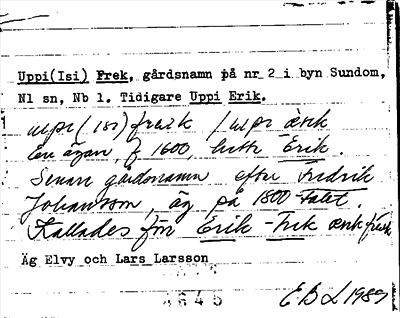 Uppi(Isi) Frek, gårdsnamn på nr 2 i byn Sundom,
Nl sn, Nb l. Tidigare Uppi Erik.
uppi (isi) freik / uppi ærik
En ägare, f 1600, hette Erik.
Senare gårdsnamn efter Fredrik
Johansson, äg på 1800-talet.
Kallades för Erik-Frik
Äg Elvy och Lars Larsson
4645
EBL 1989